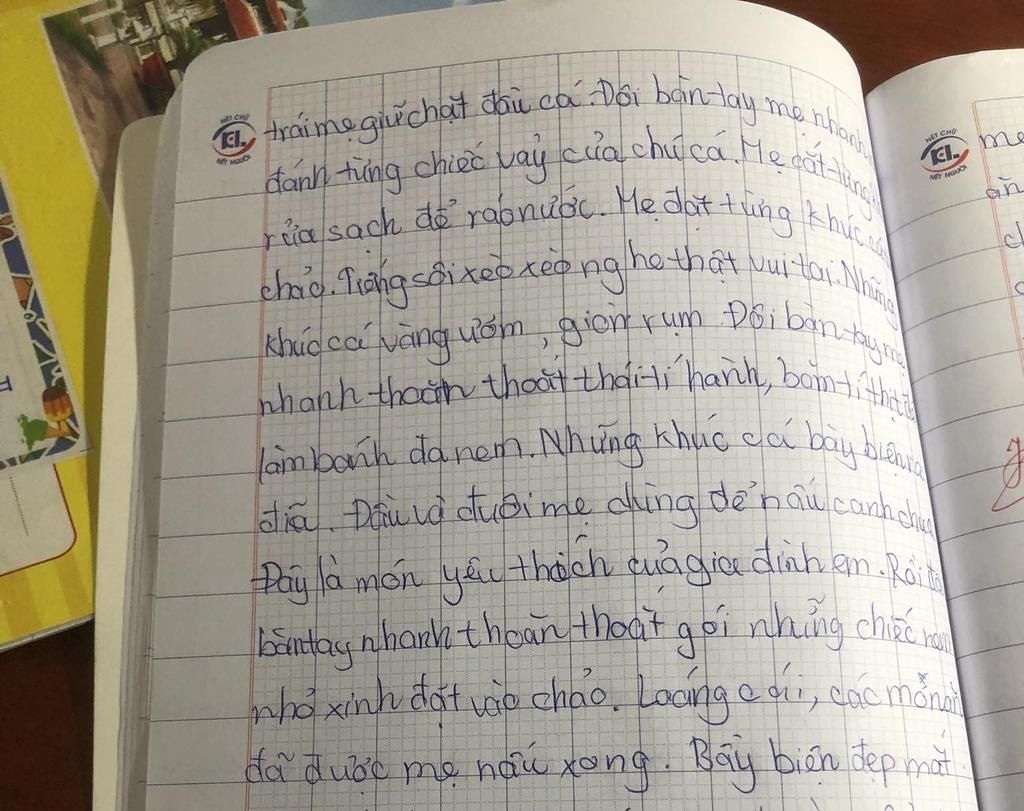 trái mẹ giữ chặt đầu cá. Đôi bàn tay mẹ nhanh
đánh từng chiếc vảy của chú cá. Mẹ cắt từng
rửa sạch để ráo nước. Mẹ đặt từng khúc cá
chảo. Tiếng sôi xèo xèo nghe thật vui tai. Những
khúc cá vàng ươm, giòn rụm. Đôi bàn tay mẹ
nhanh thoăn thoắt thái tí hành, băm tí thịt để
làm bánh đa nem. Những khúc cá bày biện ra
đĩa. Đầu và đuôi mẹ dùng để nấu canh chua
Đây là món yêu thích của gia đình em. Rồi đôi
bàn tay nhanh thoăn thoắt gói những chiếc nem
nhỏ xinh đặt vào chảo. Loáng cái, các món ăn
đã được mẹ nấu xong. Bầy biện đẹp mắt
NÉT CHỮ
NẾT NGƯỜI
NÉT CHỮ
NẾT NGƯỜI
mẹ